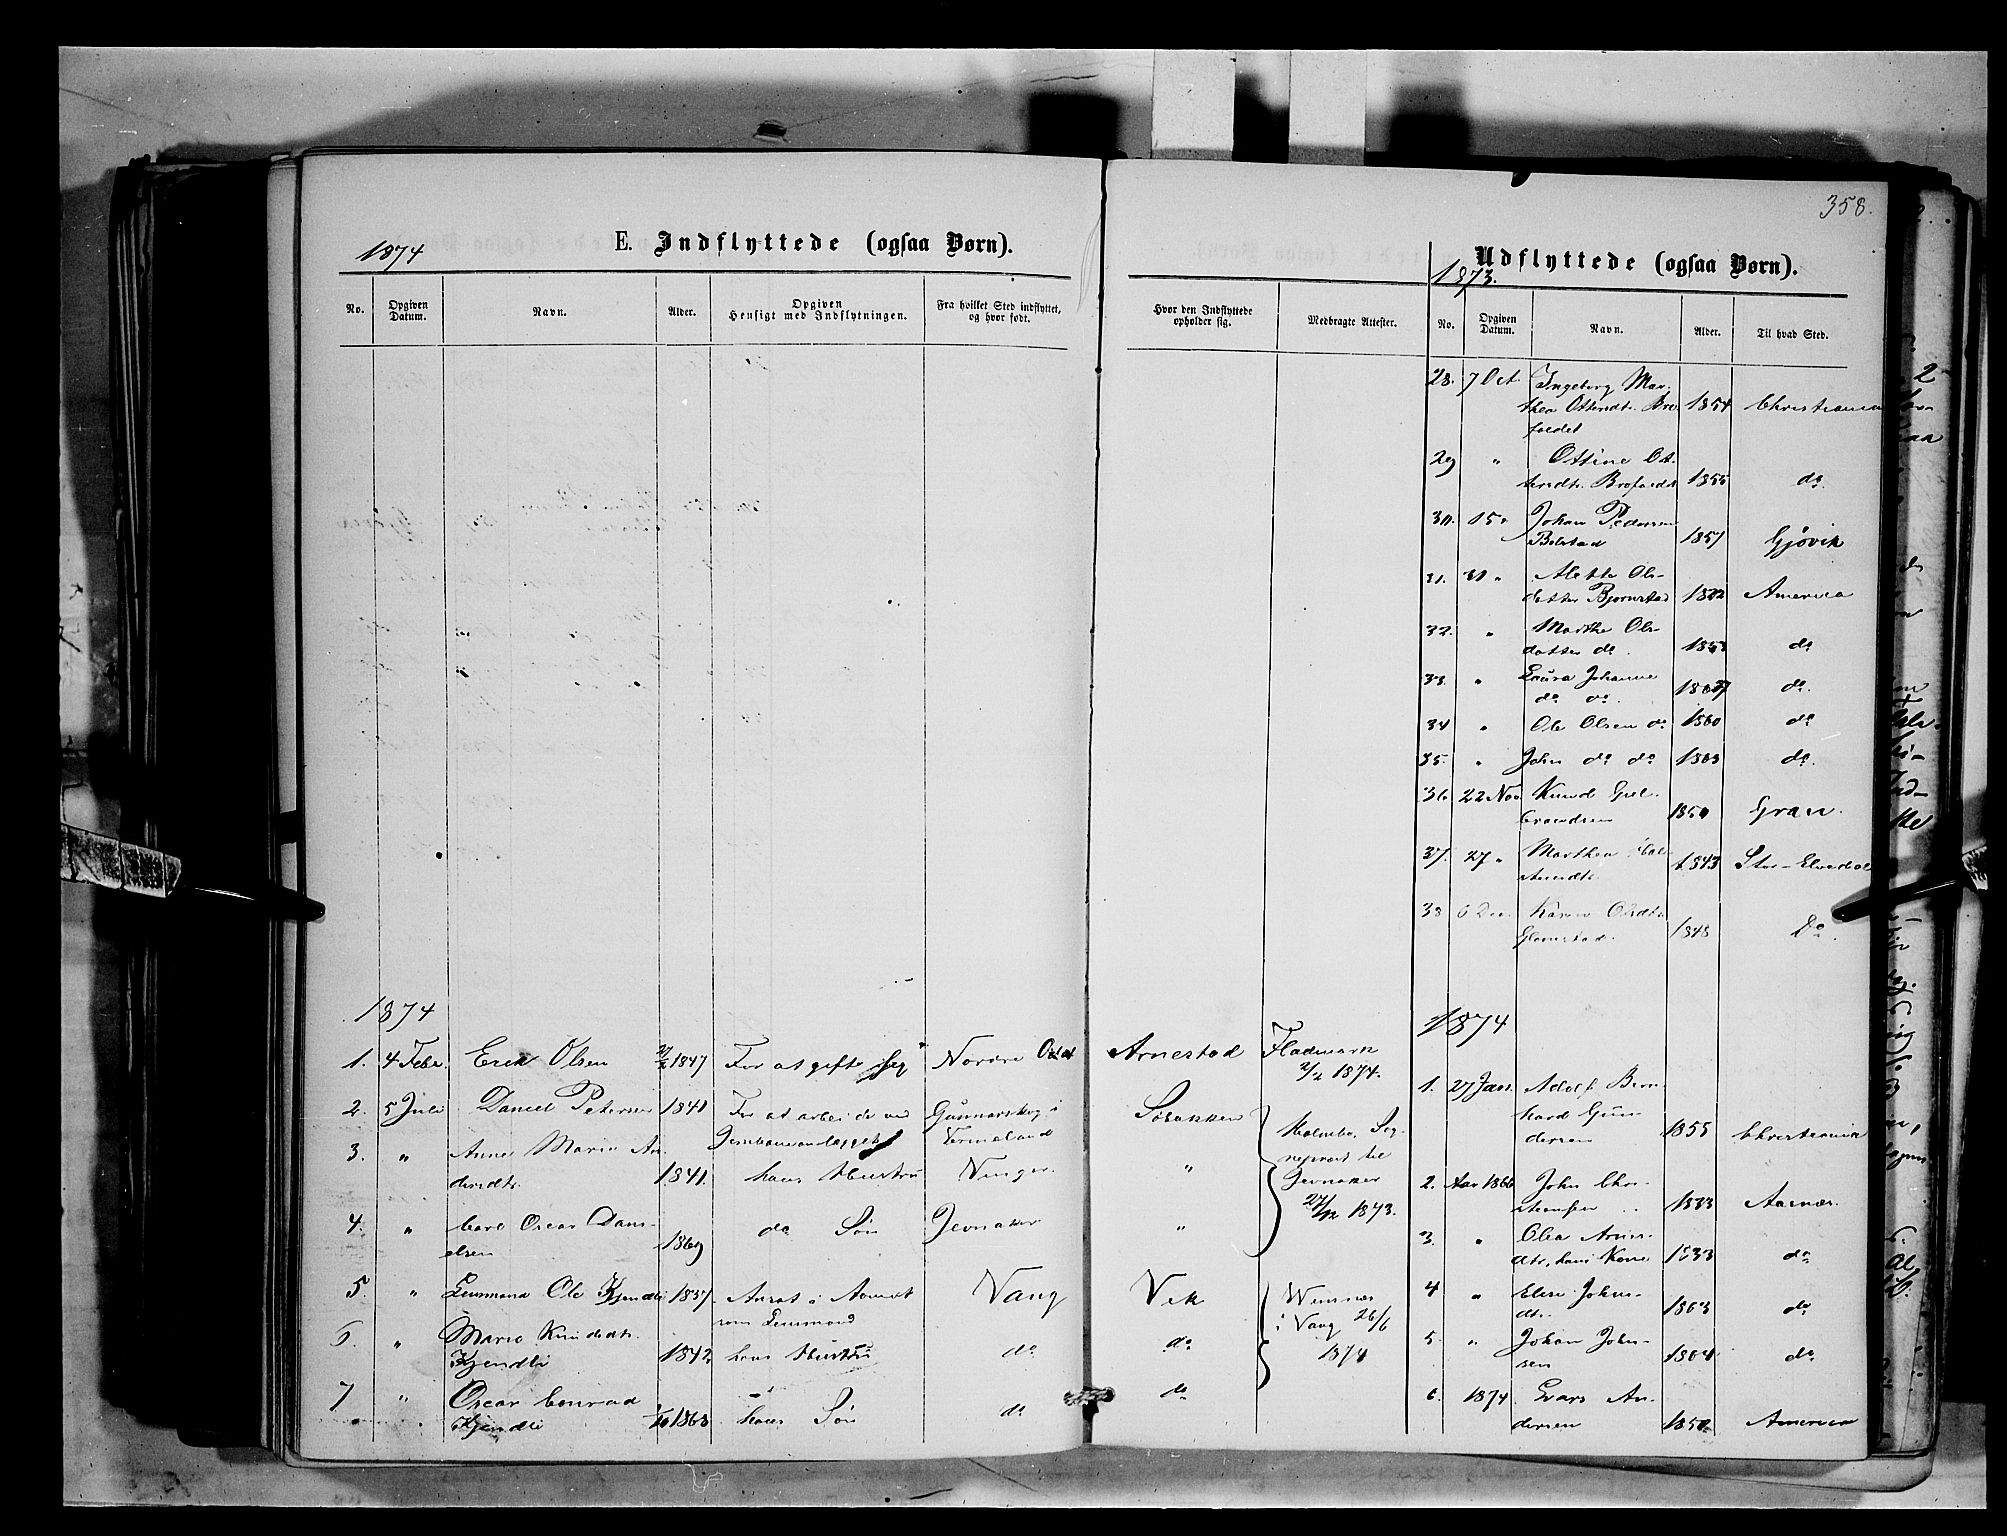 358.
1874
E. Indflyttede (ogsaa Børn).
No.
Opgiven Datum.
Navn.
Alder.
Opgiven Hensigt med Indflytningen.
Fra hvilket Sted indflyttet, og hvor født.
1874
1. 4 Febr. Erik Olsen 1847 For at gifte sig Nordre
2. 5 Juli Daniel Petersen 1841 For at arbeide ved Gunnarskog i
Jernbaneanlægget Vermeland
3. " Anne Marie An-
dersdtr. 1841. hans Hustru Vinger.
4. " Carl Oscar Dani-
elsen 1869 do Søn Jevnaker
5. " Lensmand Ole Kjendli 1837 Ansat i Aamot Vang
som Lensmand
6. " Marie Knudsdtr.
Kjendli 1842 hans Hustru do
7 " Oscar Conrad
Kjendli 1863 hans Søn do
Hvor den Indflyttede opholder sig.
Medbragte Attester.
Arnestad Flademark
2/2 1874.
"
Jevnaker
27/12 1873.
"
Vik
i Vang 26/6
1874
do
do
Udflyttede (ogsaa Børn).
1873.
No.
Opgiven Datum.
Navn.
Alder.
Til hvad Sted.
28. 7 Oct. Ingeborg Mar-
thea Ottersdtr. Bro-
foedet 1854 Christiania
29 " Ottine Ot-
tersdtr. Brofoedet 1855 do
30. 15 " Johan Pedersen
Bolstad 1857 Gjøvik
31. 31 " Alette Ols-
datter Bjørnstad America
32. " Marthe Ols-
datter do. do
33. " Laura Johanne
do do. do.
34 " Ole Olsen do 1860 do
35. " John do do 1863 do.
36 22 Nov. Knud Gul-
brandsen Gran.
37. 27 " Marthea
1843 Stor-Elvedal
38 6 Dec. Karen Olsdtr.
1848 Do.
1874
1. 27 Jan. Adolf Bern-
hard Gun-
dersen 1855 Christiania
2. Aar 1866 John Chri-
stensen 1833 Aasnæs.
3. " Olea Arne-
dtr, hans Kone 1833 do
4 " Elise Johns-
dtr. 1863 do
5. " Johan John-
sen 1864 do
6. 1874 Lars An-
dersen America